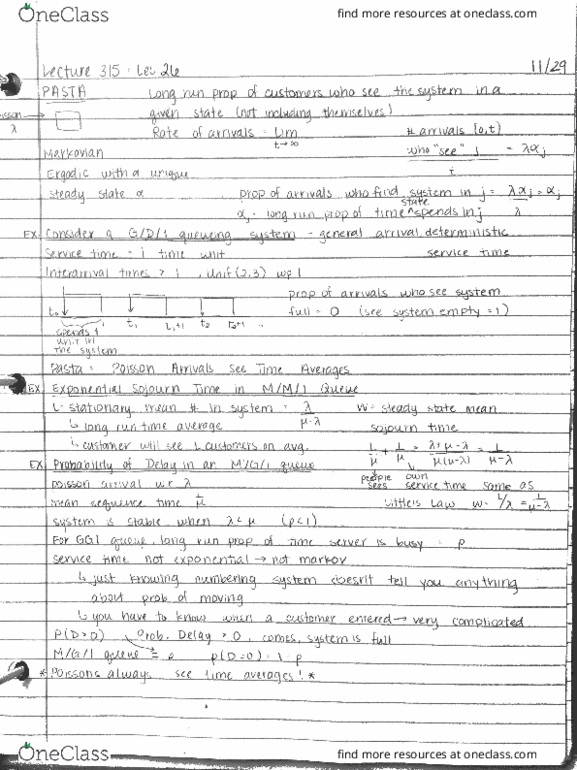 OneClass
find more resources at oneclass.com
Lecture 315 · Lec 26 11/29
PASTA Long run prop of customers who see the system in a
given state (not including themselves)
λ
Rate of arrivals = lim t→∞ # arrivals [0,t) who "see" j / t = λαj
Markovian
Ergodic with a unique
steady state α prop of arrivals who find system in j = λαj / λ = αj
αj = long run prop of time state spends in j
EX Consider a G/D/1 queueing system - general arrival deterministic
service time = 1 time unit service time
Interarrival times > 1, unif(2,3) wp 1
prop of arrivals who see system
full = 0 (see system empty = 1)
t0 t1 t1+1 t2 t2+1 ..
spends 1
unit in
the system
Pasta = Poisson Arrivals See Time Averages
EX Exponential Sojourn Time in M/M/1 Queue
L = stationary mean # in system = λ/(μ-λ) W = steady state mean
↳ long run time average sojourn time
↳ customer will see L customers on avg. L/μ + 1/μ = (λ+μ-λ)/(μ(μ-λ)) = 1/(μ-λ)
people sees own service time same as
EX Probability of Delay in an M/G/1 queue
poisson arrival w.r λ
Little's Law W = L/λ = 1/(μ-λ)
mean time 1/μ
system is stable when λ<μ (ρ<1)
For GG1 queue, long run prop of time server is busy = ρ
service time not exponential → not markov
↳ just knowing numbering system doesn't tell you anything
about prob of moving
↳ you have to know when a customer entered → very complicated
P(D>0) Prob. Delay > 0, comes, system is full
M/G/1 queue = ρ p(D=0) = 1-ρ
*Poissons always see time averages! *
OneClass
find more resources at oneclass.com